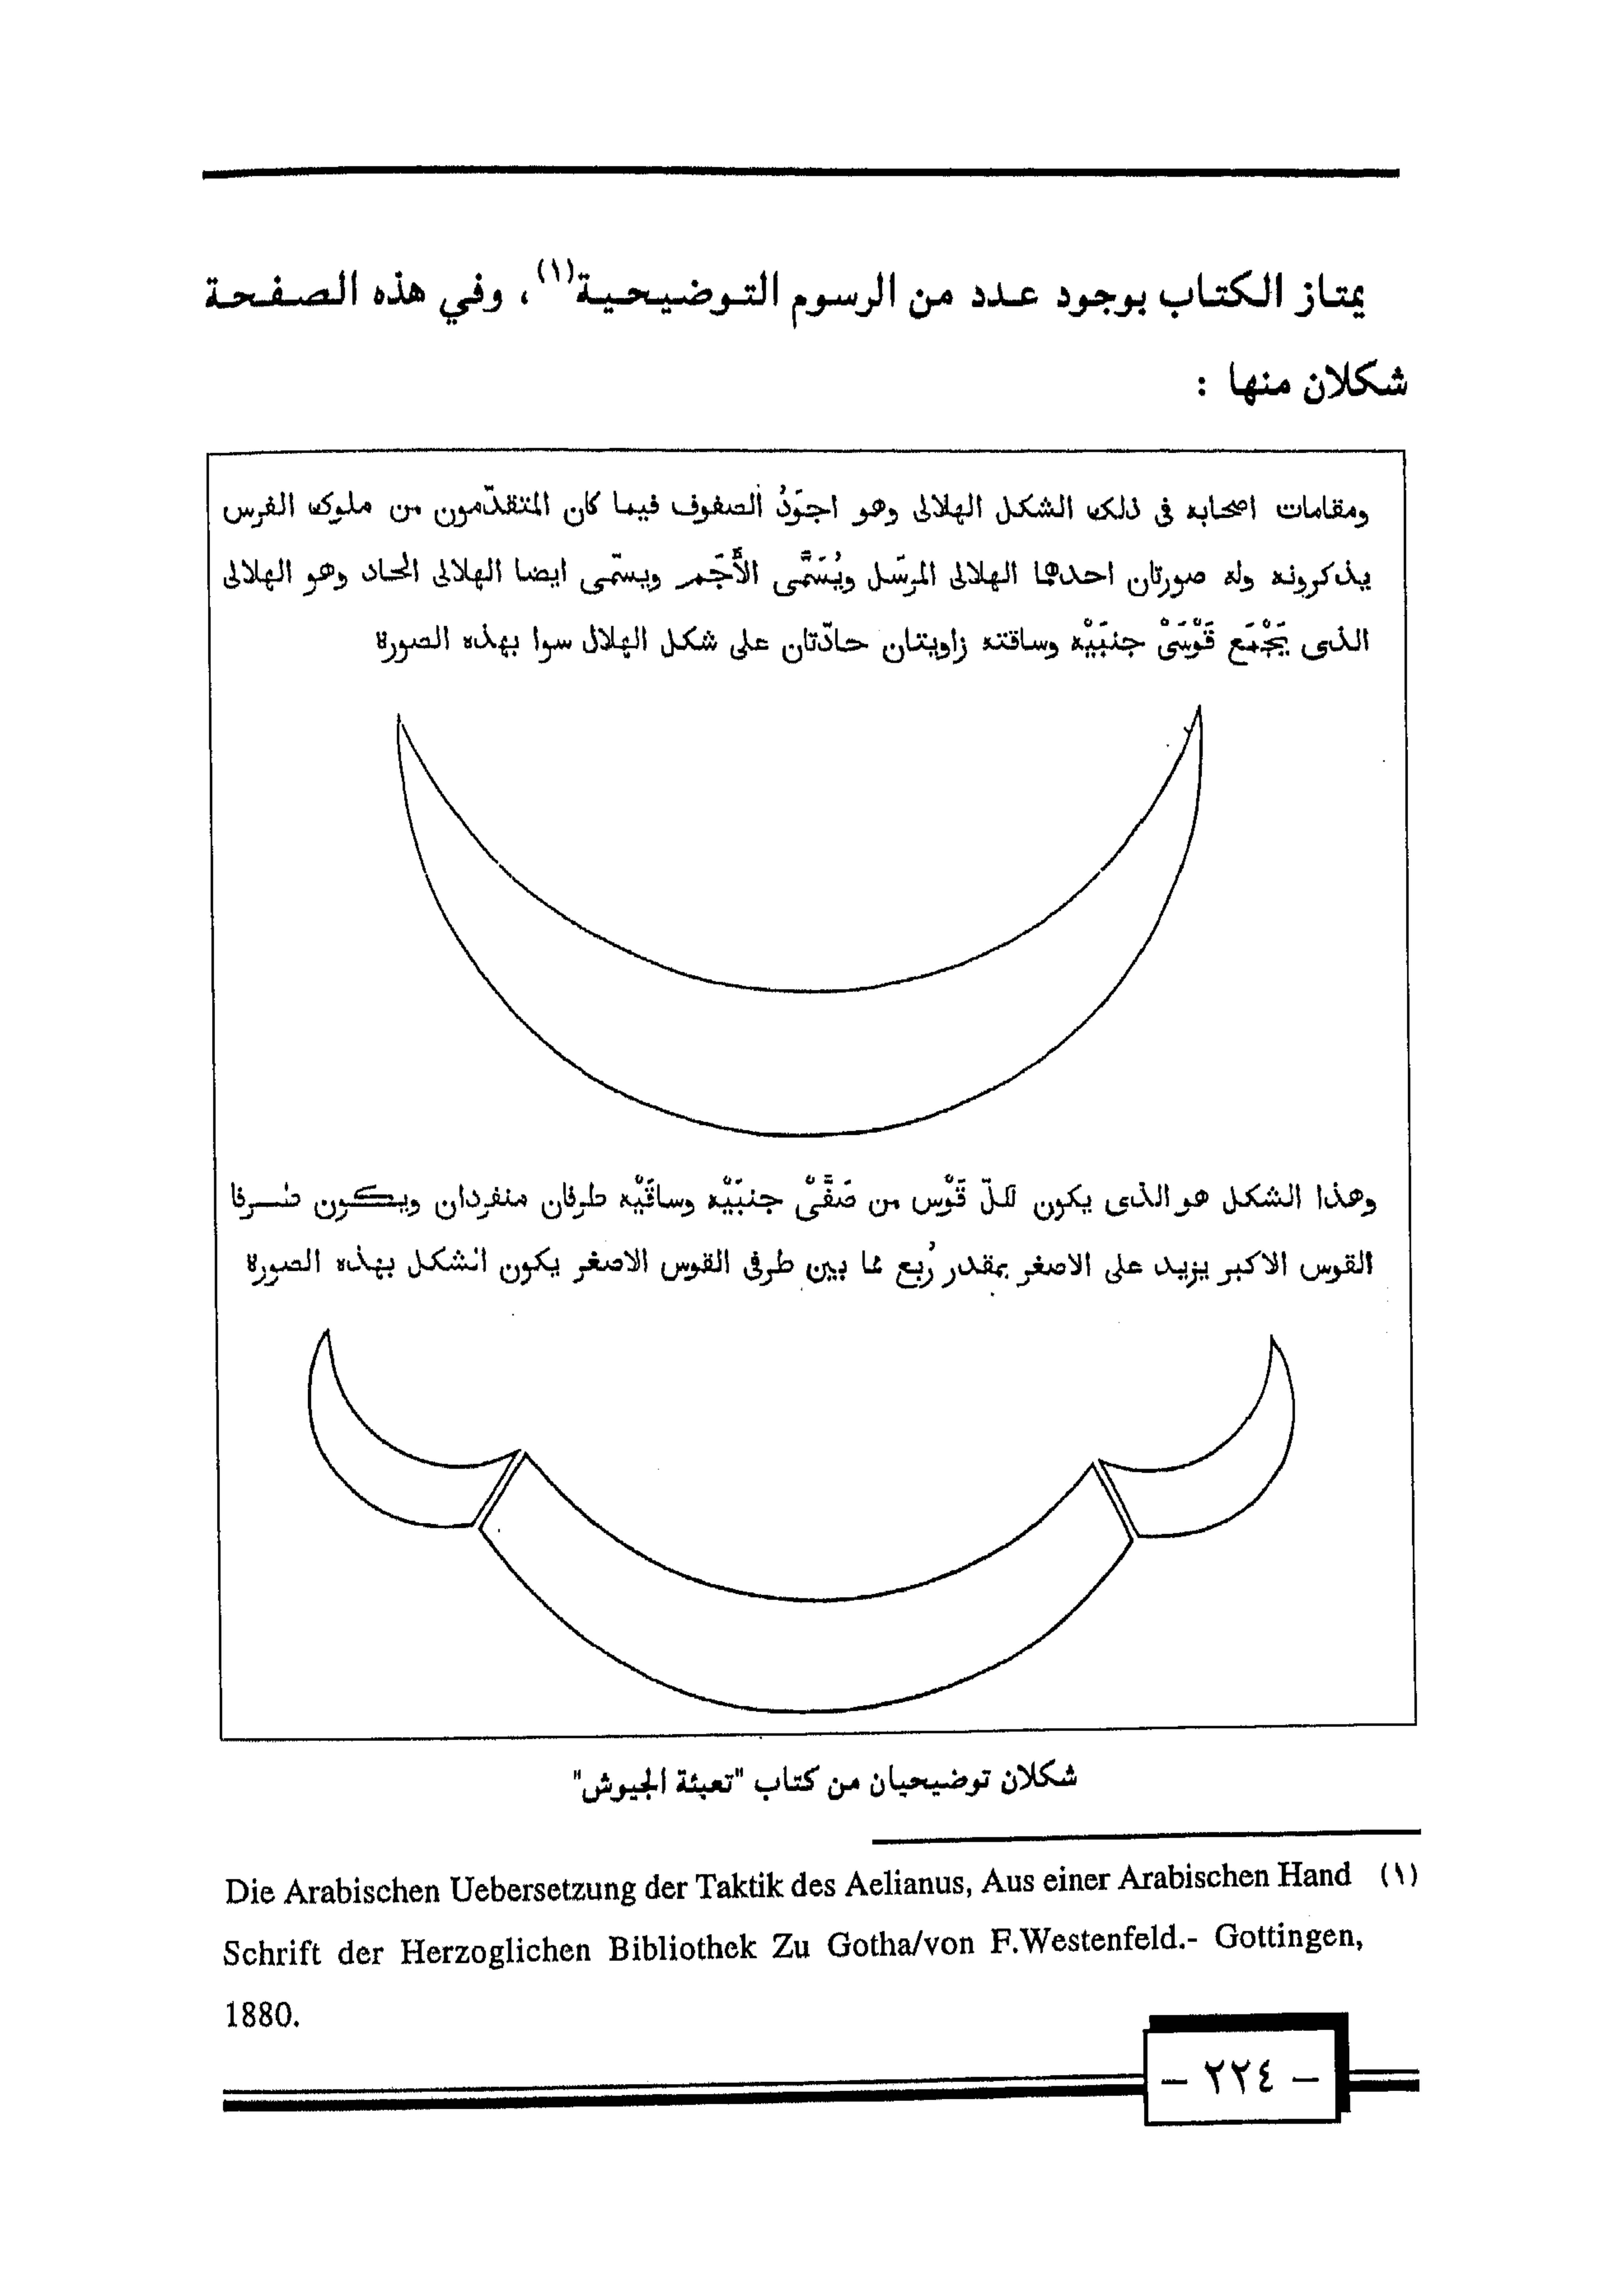 يمتاز الكتاب بوجود عدد من الرسوم التوضيحية(١)، وفي هذه الصفحة
شكلان منها :
ومقامات اصحابه فى ذلك الشكل الهلالى وهو اجوَدُ الصفوف فيما كان المتقدّمون من ملوك الفرس
يذكرونه وله صورتان احدهما الهلالى المرسَل ويُسَمَّى الأَجَم ويسمّى ايضا الهلالى الحاد وهو الهلالى
الذى يَجْمَع قَوْسَىْ جنبَيْه وساقته زاويتان حادّتان على شكل الهلال سوا بهذه الصورة
وهذا الشكل هو الذى يكون لكلّ قَوْس من صَفَّىْ جنبَيْه وساقَيْه طرفان منفردان ويكون طرفا
القوس الاكبر يزيد على الاصغر بمقدر رُبع مما بين طرفى القوس الاصغر يكون الشكل بهذه الصورة
شكلان توضيحيان من كتاب "تعبئة الجيوش"
(١) Die Arabischen Uebersetzung der Taktik des Aelianus, Aus einer Arabischen Hand
Schrift der Herzoglichen Bibliothek Zu Gotha/von F.Westenfeld.- Gottingen,
1880.
- ٢٢٤ -